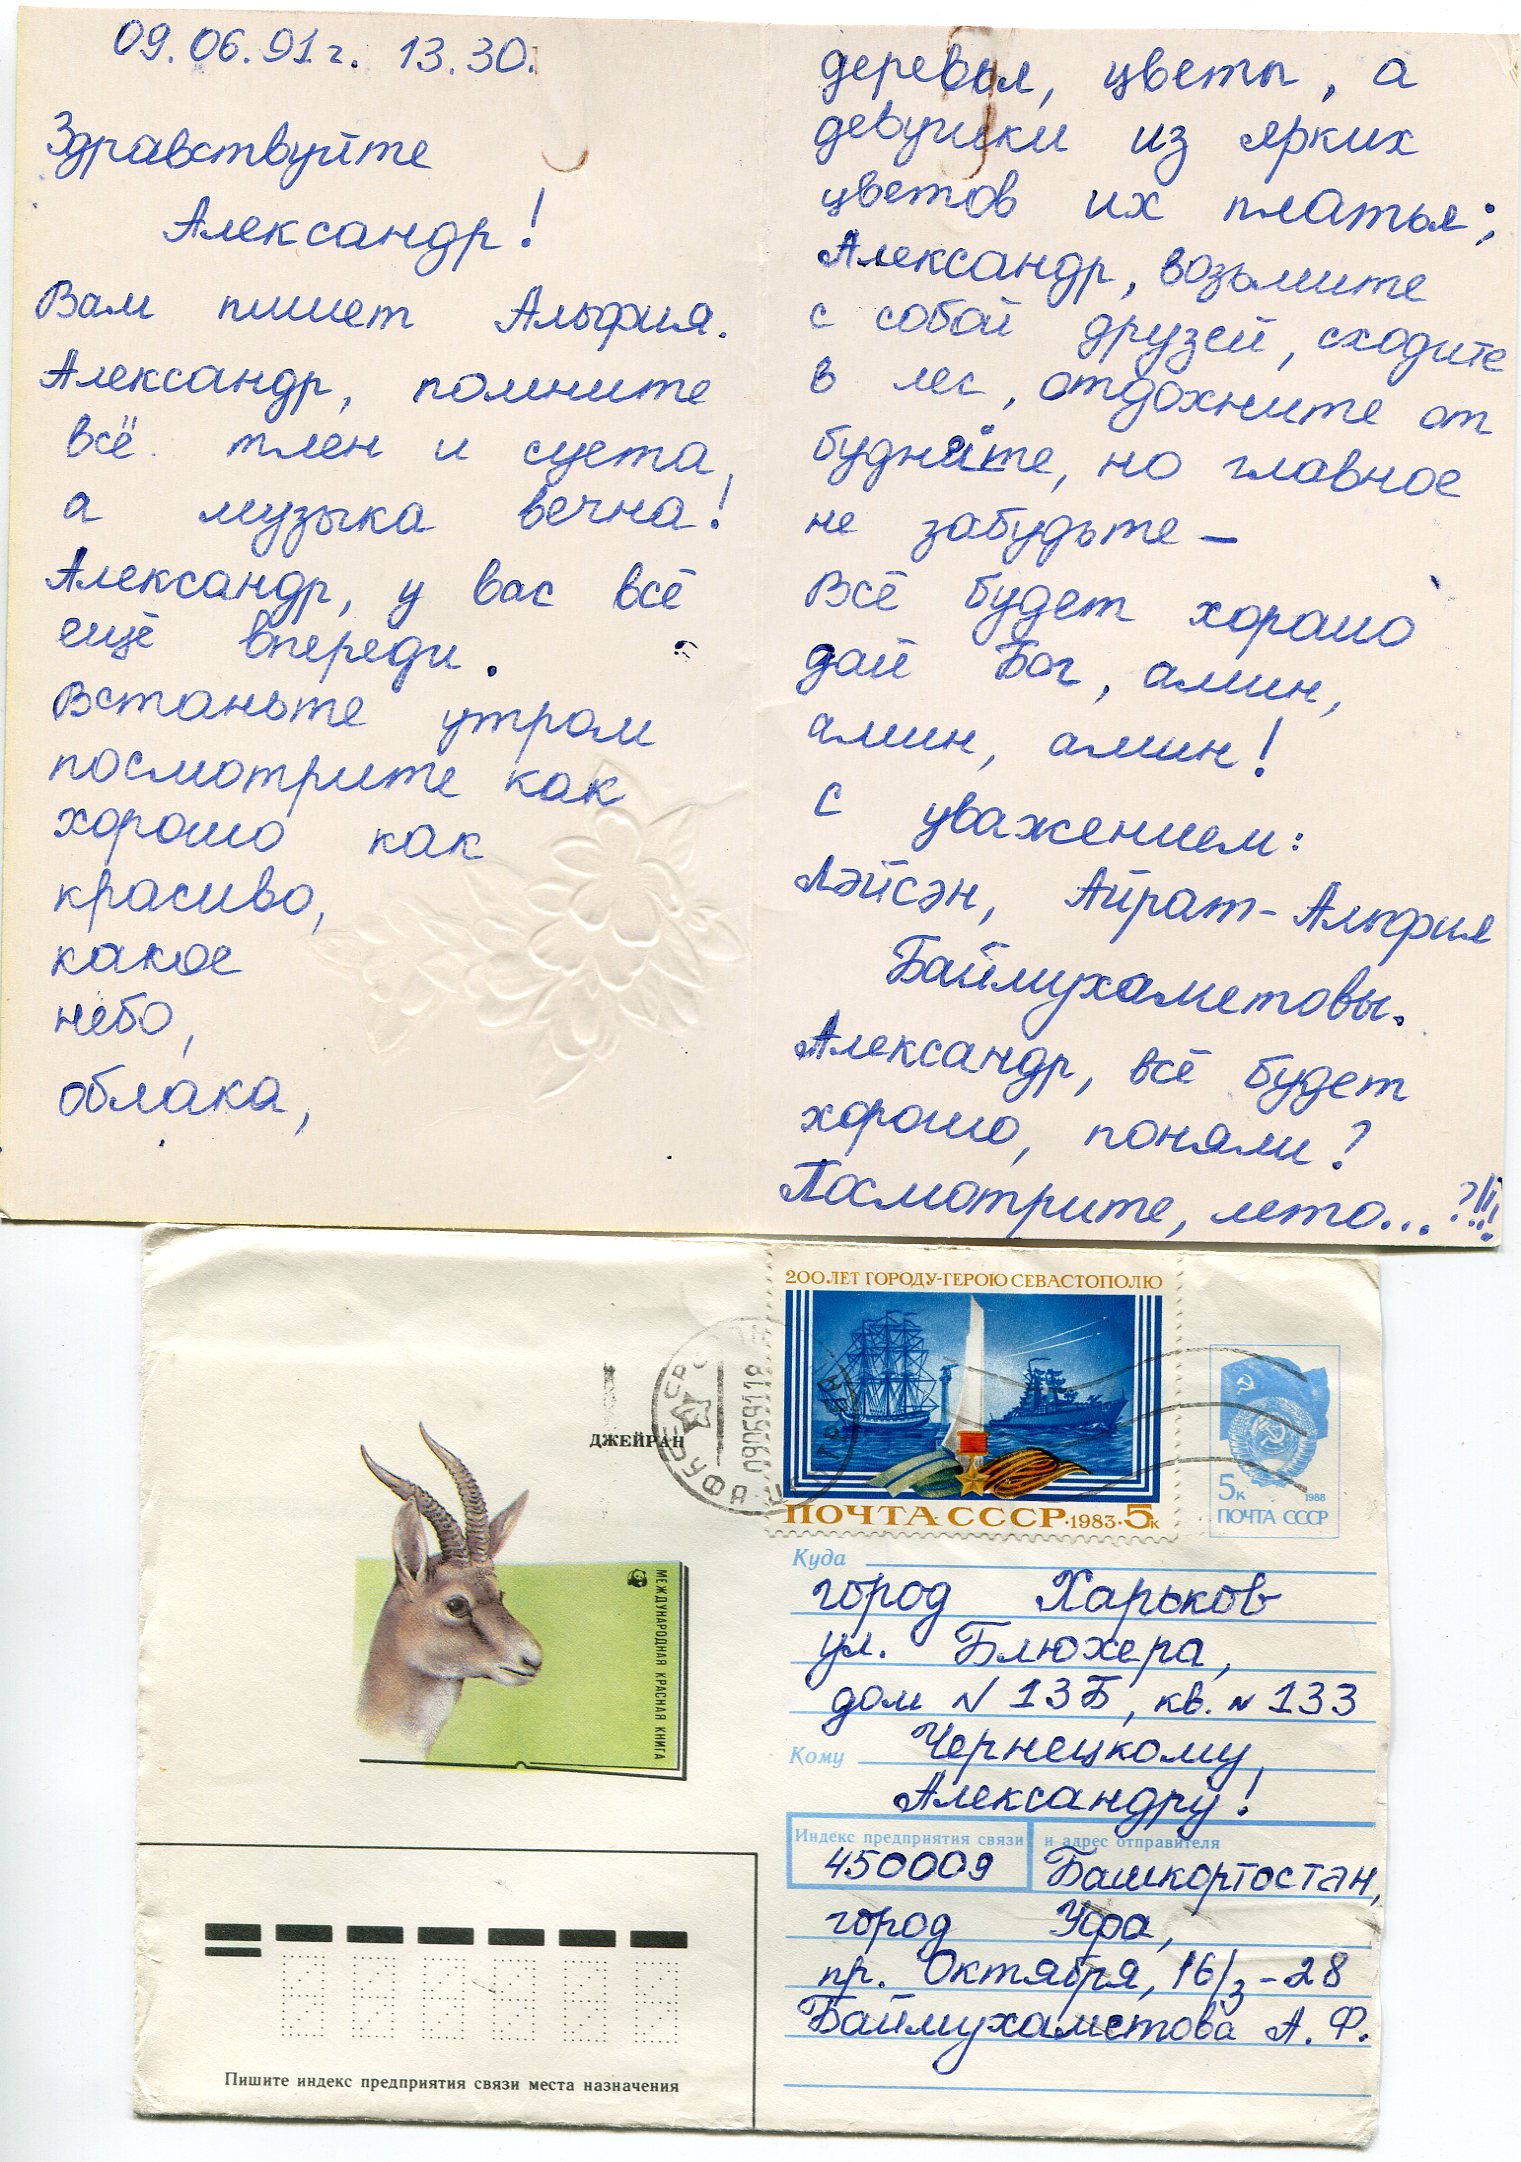 09.06.91г. 13.30.
Здравствуйте
Александр!
Вам пишет Альфия.
Александр, помните
всё тлен и суета,
а музыка вечна!
Александр, у вас всё
ещё впереди.
Встаньте утром
посмотрите как
хорошо как
красиво,
какое
небо,
облака,
деревья, цветы, а
девушки из ярких
цветов их платья;
Александр, возьмите
с собой друзей, сходите
в лес, отдохните от
но главное
не забудьте –
Всё будет хорошо
дай Бог, амин,
амин, амин!
С уважением:
Ләйсән, Айрат-Альфия
Баймухаметовы.
Александр, всё будет
хорошо, поняли?
Посмотрите, лето...?!!!
200 ЛЕТ ГОРОДУ-ГЕРОЮ СЕВАСТОПОЛЮ
ПОЧТА СССР·1983·5к
5к 1988
ПОЧТА СССР
ДЖЕЙРАН
МЕЖДУНАРОДНАЯ КРАСНАЯ КНИГА
Куда
город Харьков
ул. Блюхера,
дом N 13Б, кв. N 133
Кому Чернецкому,
Александру!
Индекс предприятия связи и адрес отправителя
450009 Башкортостан,
город Уфа,
пр. Октября, 16/3-28
Баймухаметова А. Ф.
Пишите индекс предприятия связи места назначения